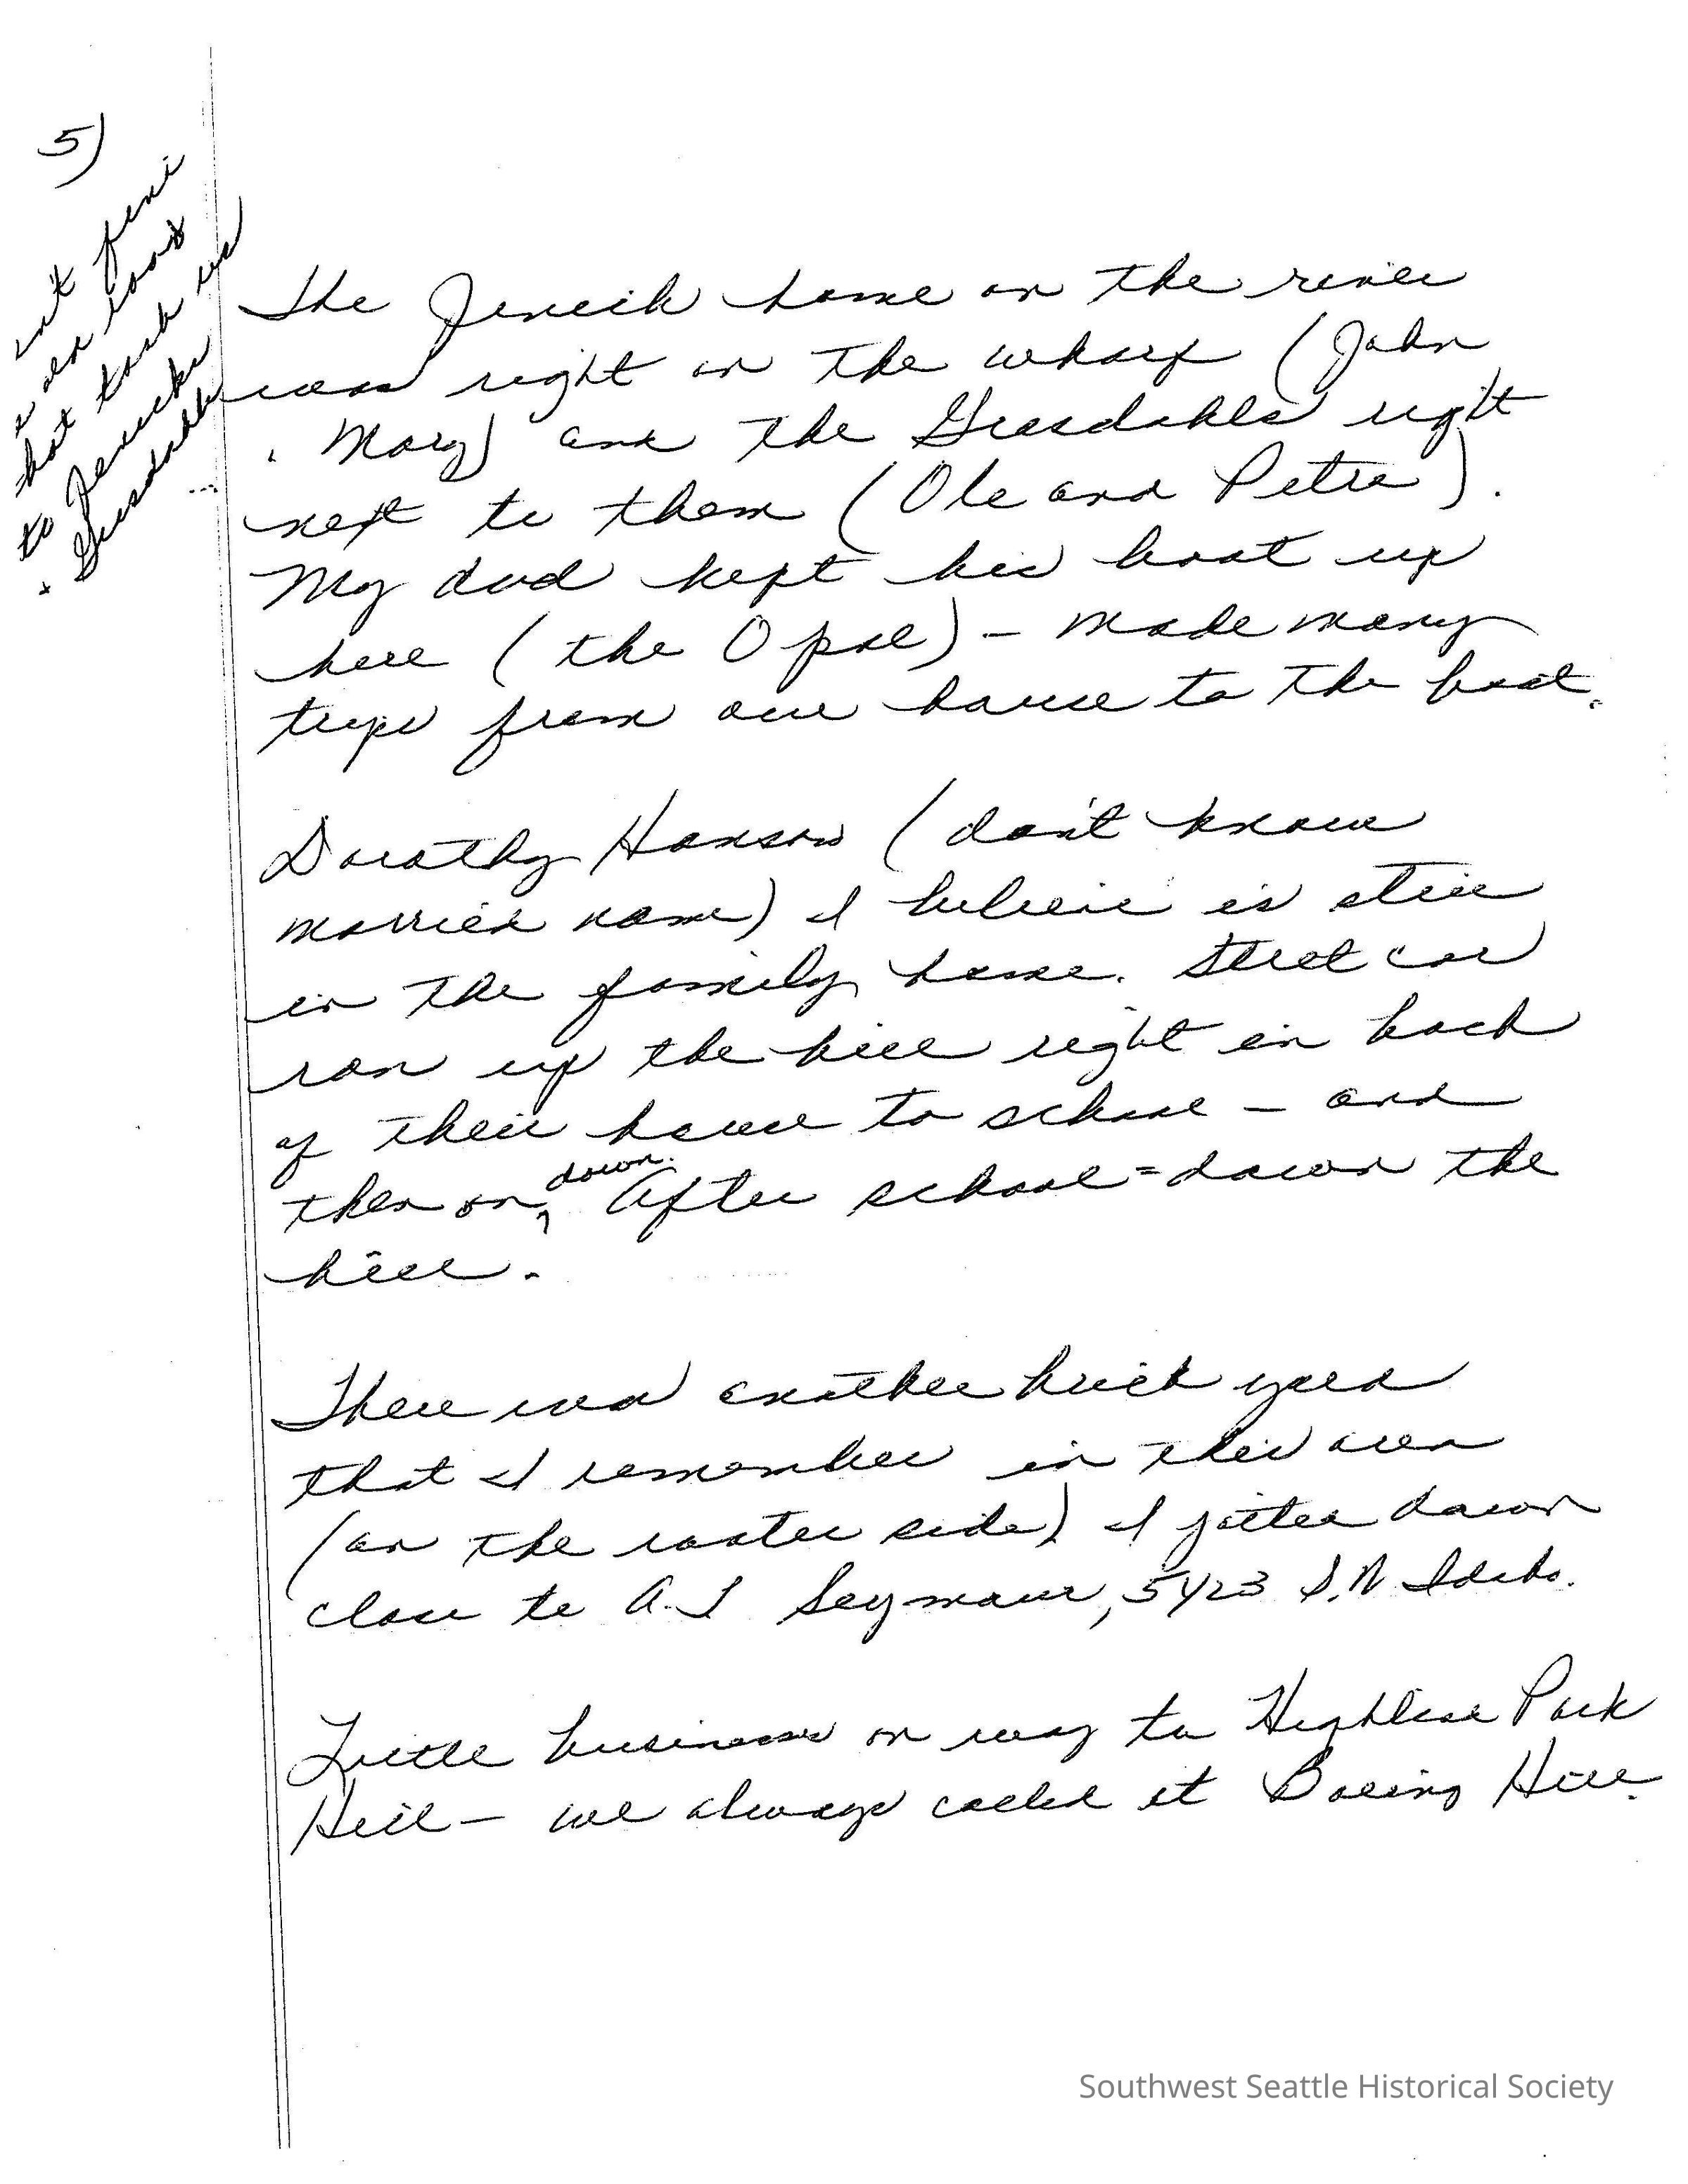 5)
n't find
old road
that took us
to Jenicks
+ Grusdahls
The Jenicik home on the river
was right on the wharf (John
. Mary) and the Grusdahls right
next to them (Ole and Petra).
My dad kept his boat up
here (the Opal) – made many
trips from our house to the boat.
Dorothy Hanson (don't know
married name) I believe is still
in the family home. Street car
ran up the hill right in back
of their house to school – and
then on down. After school = down the
hill.
There was another brick yard
that I remember in their area
(on the water side) I jotted down
close to A.J Seymour, 5423 S.W Idaho.
Little business on way to Highline Park
Hill – we always called it Boeing Hill.
Southwest Seattle Historical Society